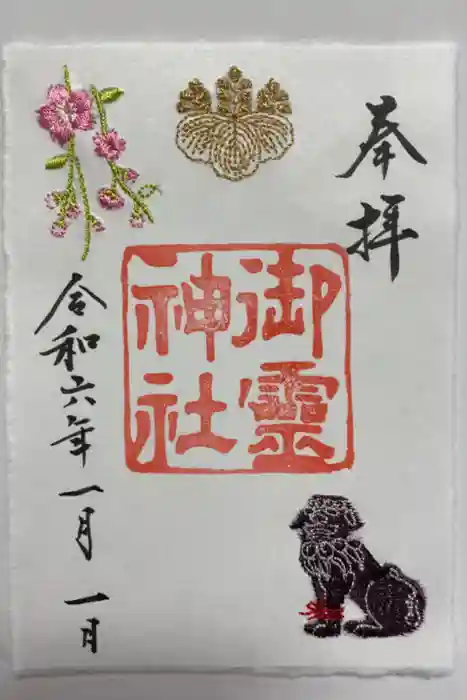 奉拝
御霊
神社
令和六年一月一日